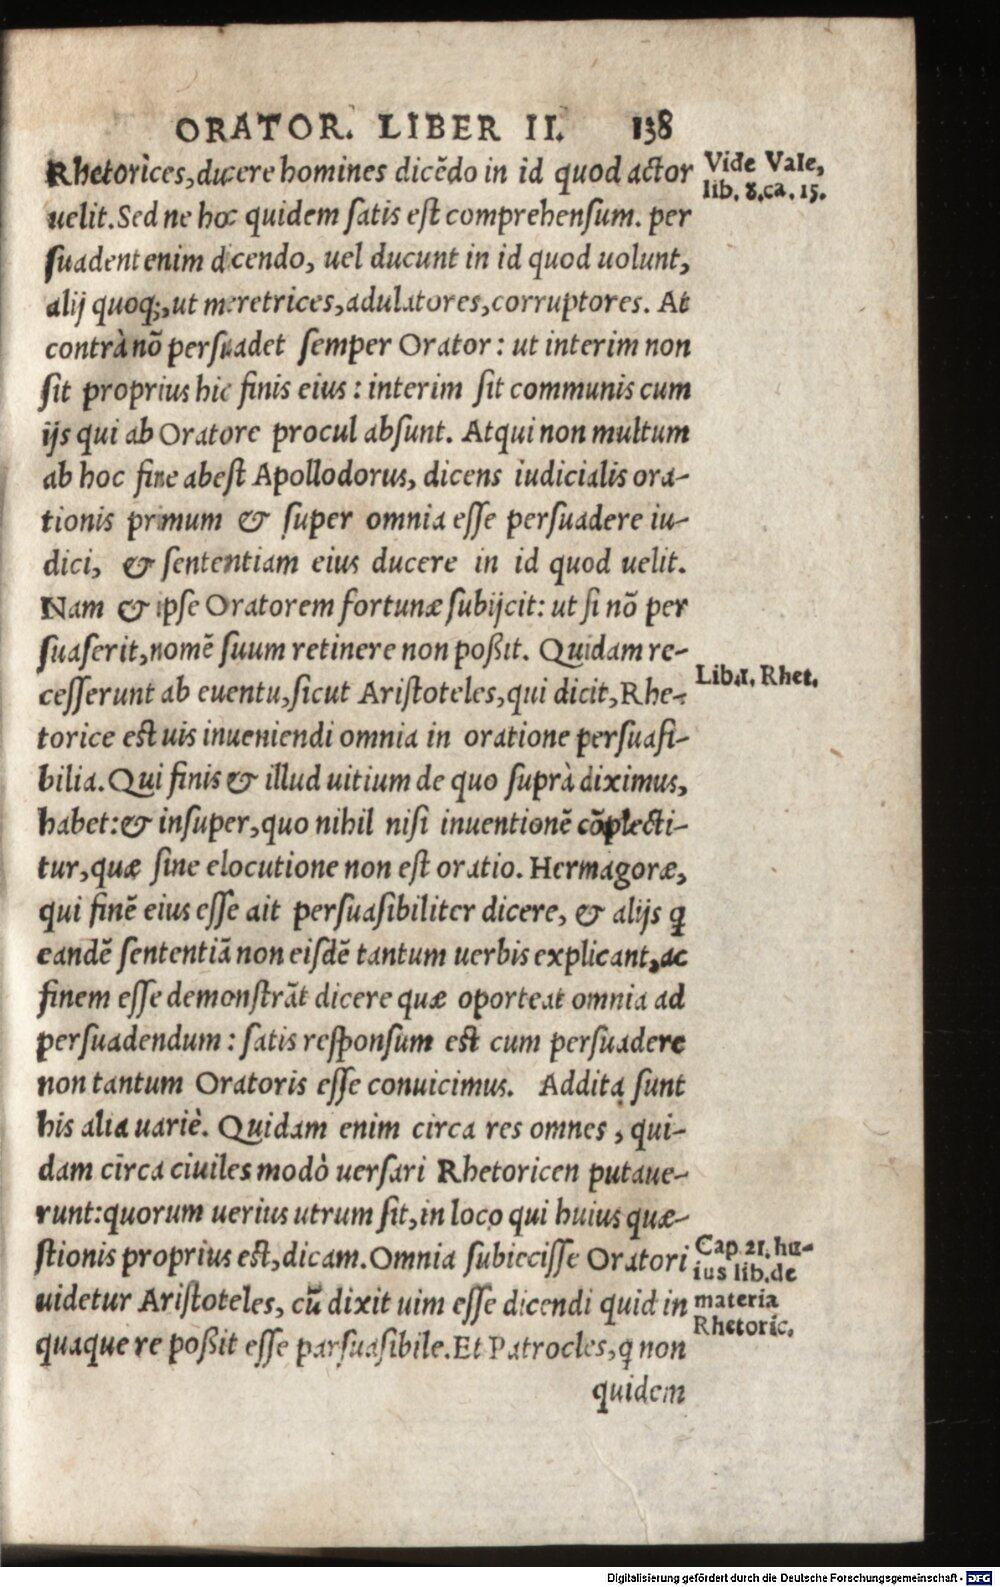 ORATOR. LIBER II. 138
Rhetorices, ducere homines dicẽdo in id quod actor
uelit. Sed ne hoc quidem satis est comprehensum. per
suadent enim dicendo, uel ducunt in id quod uolunt,
alij quoq;, ut meretrices, adulatores, corruptores. At
contrà nõ persuadet semper Orator: ut interim non
sit proprius hic finis eius: interim sit communis cum
ijs qui ab Oratore procul absunt. Atqui non multum
ab hoc fine abest Apollodorus, dicens iudicialis ora-
tionis primum & super omnia esse persuadere iu-
dici, & sententiam eius ducere in id quod uelit.
Nam & ipse Oratorem fortunæ subijcit: ut si nõ per
suaserit, nomẽ suum retinere non poßit. Quidam re-
cesserunt ab euentu, sicut Aristoteles, qui dicit, Rhe-
torice est uis inueniendi omnia in oratione persuasi-
bilia. Qui finis & illud uitium de quo suprà diximus,
habet: & insuper, quo nihil nisi inuentionẽ cõplecti-
tur, quæ sine elocutione non est oratio. Hermagoræ,
qui finẽ eius esse ait persuasibiliter dicere, & alijs q
eandẽ sententiã non eisdẽ tantum uerbis explicant, ac
finem esse demonstrãt dicere quæ oporteat omnia ad
persuadendum: satis responsum est cum persuadere
non tantum Oratoris esse conuicimus. Addita sunt
his alia uariè. Quidam enim circa res omnes, qui-
dam circa ciuiles modò uersari Rhetoricen putaue-
runt: quorum uerius utrum sit, in loco qui huius quæ-
stionis proprius est, dicam. Omnia subiecisse Oratori
uidetur Aristoteles, cũ dixit uim esse dicendi quid in
quaque re poßit esse parsuasibile. Et Patrocles, q non
quidem
Vide Vale,
lib. 8. ca. 15.
Lib. 1. Rhet.
Cap. 21. hu-
ius lib. de
materia
Rhetoric.
Digitalisierung gefördert durch die Deutsche Forschungsgemeinschaft - DFG